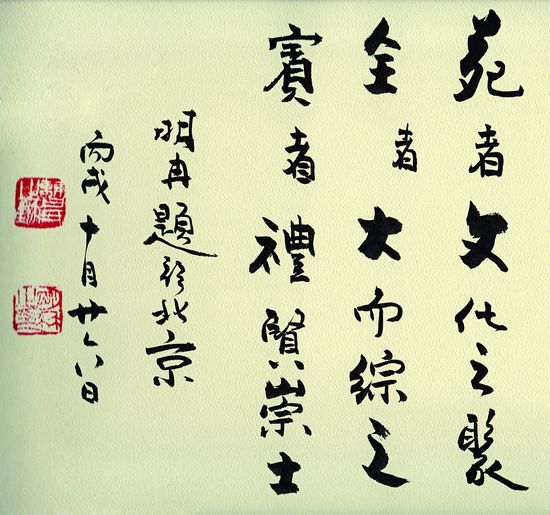 苑者文化之聚
全者大而综之
賓者禮賢崇士
明冉題於北京
丙戌十月廿八日